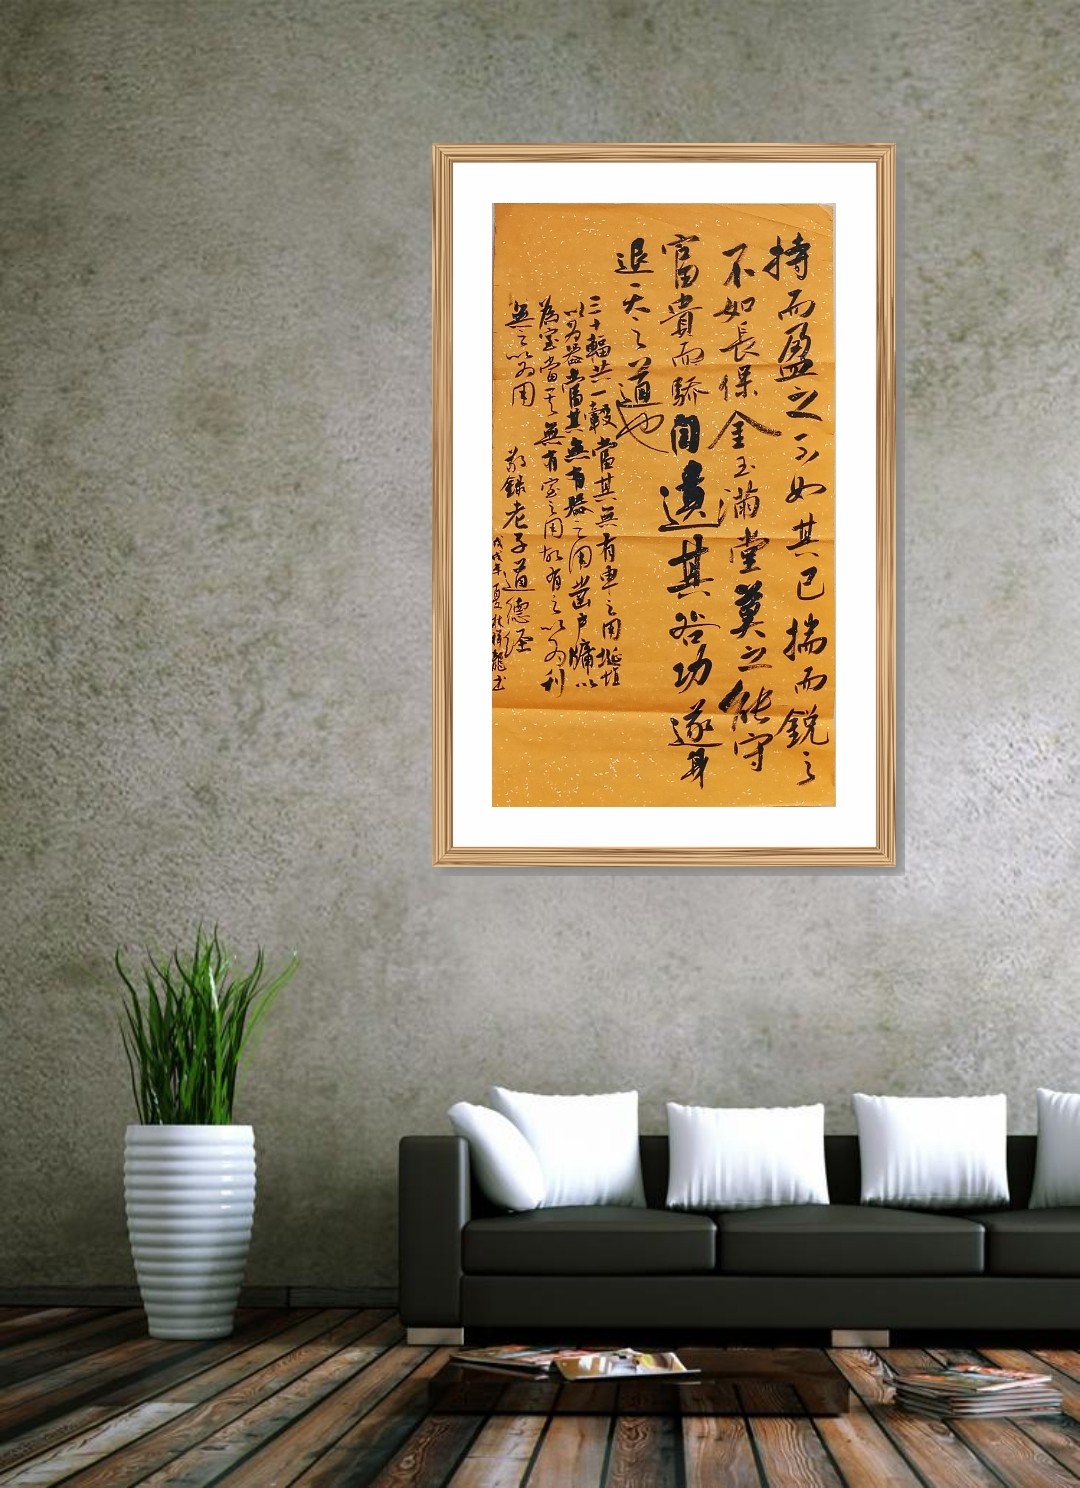 持而盈之不如其已揣而銳之
不如長保金玉滿堂莫之能守
富貴而驕自遺其咎功遂身
退天之道也
三十輻共一轂當其無有車之用埏埴
以為器當其無有器之用鑿戶牖以
為室當其無有室之用故有之以為利
無之以為用 敬錄老子道德經
戊戌年夏祥龍书